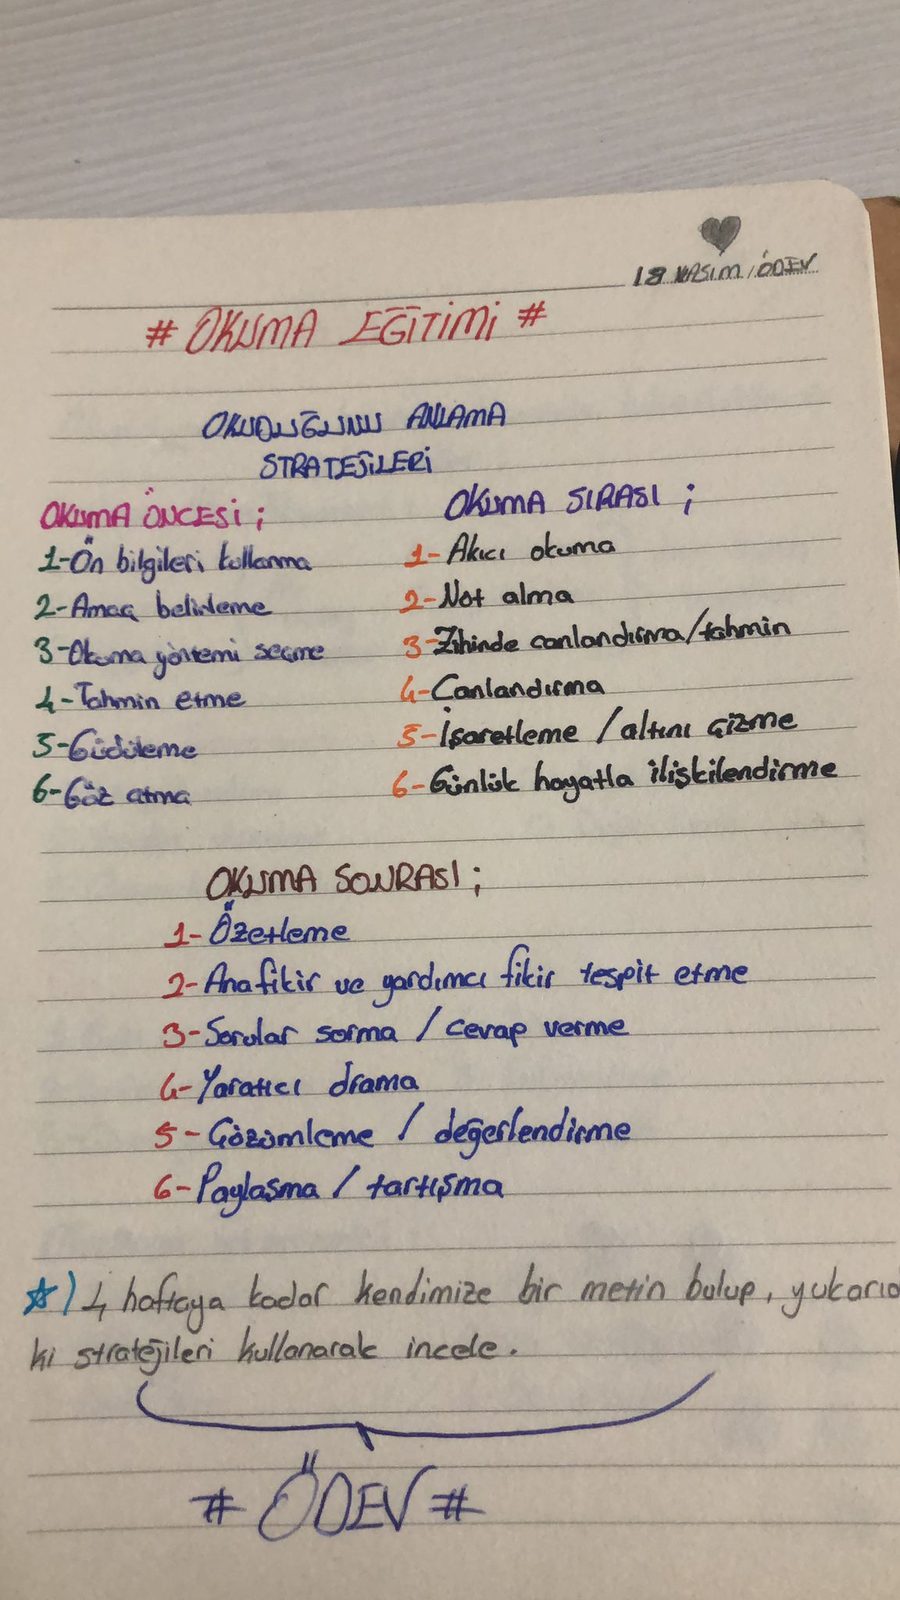 18 KASIM / ÖDEV
# OKUMA EĞİTİMİ #
OKUDUĞUNU ANLAMA
STRATEJİLERİ
OKUMA ÖNCESİ ;
1-Ön bilgileri kullanma
2-Amaç belirleme
3-Okuma yöntemi seçme
4-Tahmin etme
5-Güdüleme
6-Göz atma
OKUMA SIRASI ;
1-Akıcı okuma
2-Not alma
3-Zihinde canlandırma/tahmin
4-Canlandırma
5-İşaretleme / altını çizme
6-Günlük hayatla ilişkilendirme
OKUMA SONRASI ;
1-Özetleme
2-Anafikir ve yardımcı fikir tespit etme
3-Sorular sorma / cevap verme
4-Yaratıcı drama
5-Çözümleme / değerlendirme
6-Paylaşma / tartışma
☆) 4 haftaya kadar kendimize bir metin bulup, yukarıda
ki stratejileri kullanarak incele.
# ÖDEV #